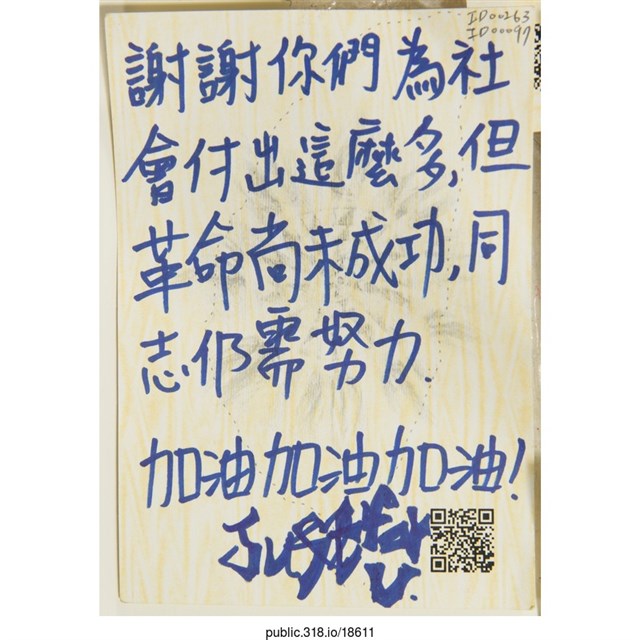 ID00263
ID00097
謝謝你們為社
會付出這麼多,但
革命尚未成功,同
志仍需努力.
加油加油加油!
public.318.io/18611